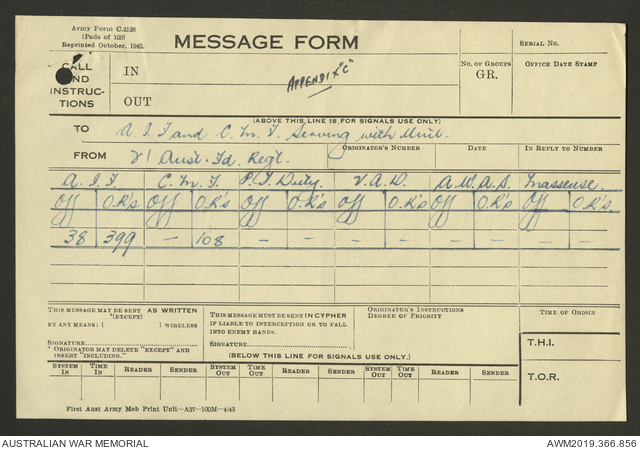 Army Form C.2128
(Pads of 100)
Reprinted October, 1942.
MESSAGE FORM
SERIAL NO.
CALL AND INSTRUCTIONS
IN
OUT
APPENDIX "C"
NO. OF GROUPS
GR.
OFFICE DATE STAMP
(ABOVE THIS LINE IS FOR SIGNALS USE ONLY)
TO A.I.F and C.M.F. Serving with Unit.
FROM 2/1 Aust. Fd. Regt.
ORIGINATOR'S NUMBER DATE IN REPLY TO NUMBER
A.I.F. C.M.F. P.T. Duty. V.A.D. A.W.A.S. Masseuse.
Off O.R's Off O.R's Off O.R's Off O.R's Off O.R's Off O.R's.
38 399 — 108 — — — — — — — —
THIS MESSAGE MAY BE SENT AS WRITTEN
*(EXCEPT)
BY ANY MEANS: ( ) WIRELESS
SIGNATURE
* ORIGINATOR MAY DELETE "EXCEPT" AND
INSERT "INCLUDING."
THIS MESSAGE MUST BE SENT IN CYPHER
IF LIABLE TO INTERCEPTION OR TO FALL
INTO ENEMY HANDS.
SIGNATURE
ORIGINATOR'S INSTRUCTIONS
DEGREE OF PRIORITY
TIME OF ORIGIN
T.H.I.
T.O.R.
(BELOW THIS LINE FOR SIGNALS USE ONLY.)
SYSTEM IN TIME IN READER SENDER SYSTEM OUT TIME OUT READER SENDER SYSTEM OUT TIME OUT READER SENDER
First Aust Army Mob Print Unit—A37—100M—4/43
AUSTRALIAN WAR MEMORIAL
AWM2019.366.856